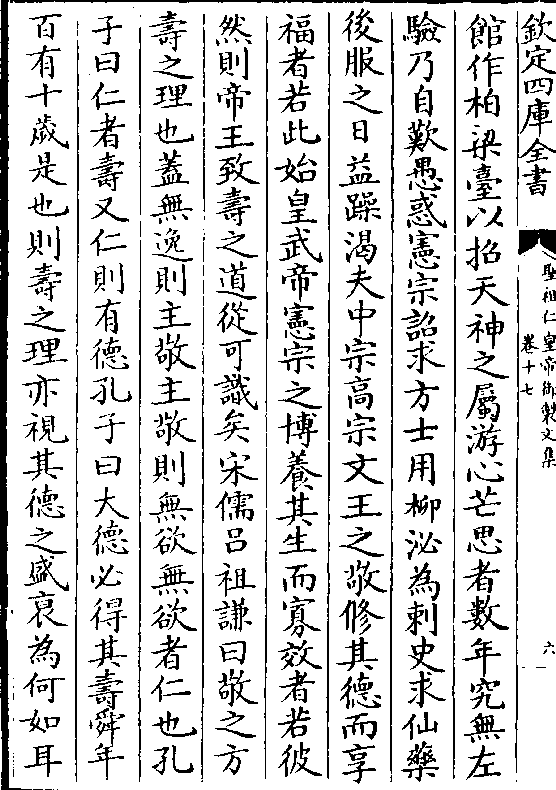 欽定四庫全書
聖祖仁皇帝御製文集
卷十七
六
館作柏梁臺以招天神之屬游心芒思者數年究無左
驗乃自歎愚惑憲宗詔求方士用柳泌為刺史求仙藥
後服之日益躁渴夫中宗高宗文王之敬修其德而享
福者若此始皇武帝憲宗之博養其生而寡效者若彼
然則帝王致壽之道從可識矣宋儒呂祖謙曰敬之方
壽之理也蓋無逸則主敬主敬則無欲無欲者仁也孔
子曰仁者壽又仁則有德孔子曰大德必得其壽舜年
百有十歲是也則壽之理亦視其德之盛衰為何如耳